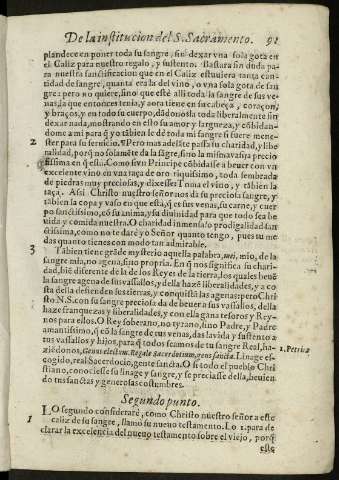 De la institucion del S. Sacramento. 91
plandece en poner toda su sangre, sin dexar vna sola gota en
el Caliz para nuestro regalo, y sustento. Bastara sin duda pa-
ra nuestra sanctificacion que en el Caliz estuuiera tanta can-
tidad de sangre, quanta era la del vino, o vna sola gota de san-
gre: pero no quiere, sino que estè alli toda la sangre de sus ve-
nas, la que entonces tenia, y aora tiene en su cabeça, coraçon,
y braços, y en todo su cuerpo, dãdonosla toda liberalmente sin
dexar nada, mostrando en esto su amor y largueza, y cõbidan-
dome a mi para q̃ yo tãbien le dè toda mi sangre si fuere menes-
2 ter para su seruicio. ¶ Pero mas adelãte passa su charidad, y libe-
ralidad, porq̃ no solamẽte da la sãgre, sino la misma vasija precio
sissima en q̃ està. Como si vn Principe cõbidasse a beuer con vn
excelente vino en vna taça de oro riquissimo, toda sembrada
de piedras muy preciosas, y dixesse: Toma el vino, y tãbien la
taça. Assi Christo nuestro señor nos dà su preciosa sangre, y
tãbien la copa y vaso en que està, q̃ es sus venas, su carne, y cuer
po sanctissimo, cõ su anima, y su diuinidad para que todo sea be
uida y comida nuestra. O charidad inmensa! o prodigalidad san-
tissima, como no te darè yo Señor quanto tengo, pues tu me
das quanto tienes con modo tan admirable.
3 Tãbien tiene grãde mysterio aquella palabra, mei, mio, de la
sangre mia, no agena, sino propria. En q̃ nos significa su chari-
dad, biẽ diferente de la de los Reyes de la tierra, los quales beuẽ
la sangre agena de sus vassallos, y della hazẽ liberalidades, y a co
sta della defienden sus tierras, y conquistã las agenas: pero Chri
sto N.S. con su sangre preciosa dà de beuer a sus vassallos, della
haze franquezas y liberalidades, y con ella gana tesoros y Rey-
nos para ellos. O Rey soberano, no tyrano, sino Padre, y Padre
amantissimo, q̃ cõ la sangre de tus venas, das la vida y sustento a
tus vassallos y hijos, para q̃ todos seamos de tu sangre Real, ha-
ziẽdonos, Genus electum. Regale sacerdotium, gens sancta. Linage es- 1. Petri. 2
cogido, real Sacerdocio, gente sancta. O si todo el pueblo Chri
stiano, conociesse su linage y sangre, y se preciasse della, beuien
do tus sanctas y generosas costumbres.
Segundo punto.
1 LO segundo considerarè, como Christo nuestro señor a este
caliz de su sangre, llamò su nueuo testamento. Lo 1. para de-
clarar la excelencia del nueuo testamento sobre el viejo, porq̃
este